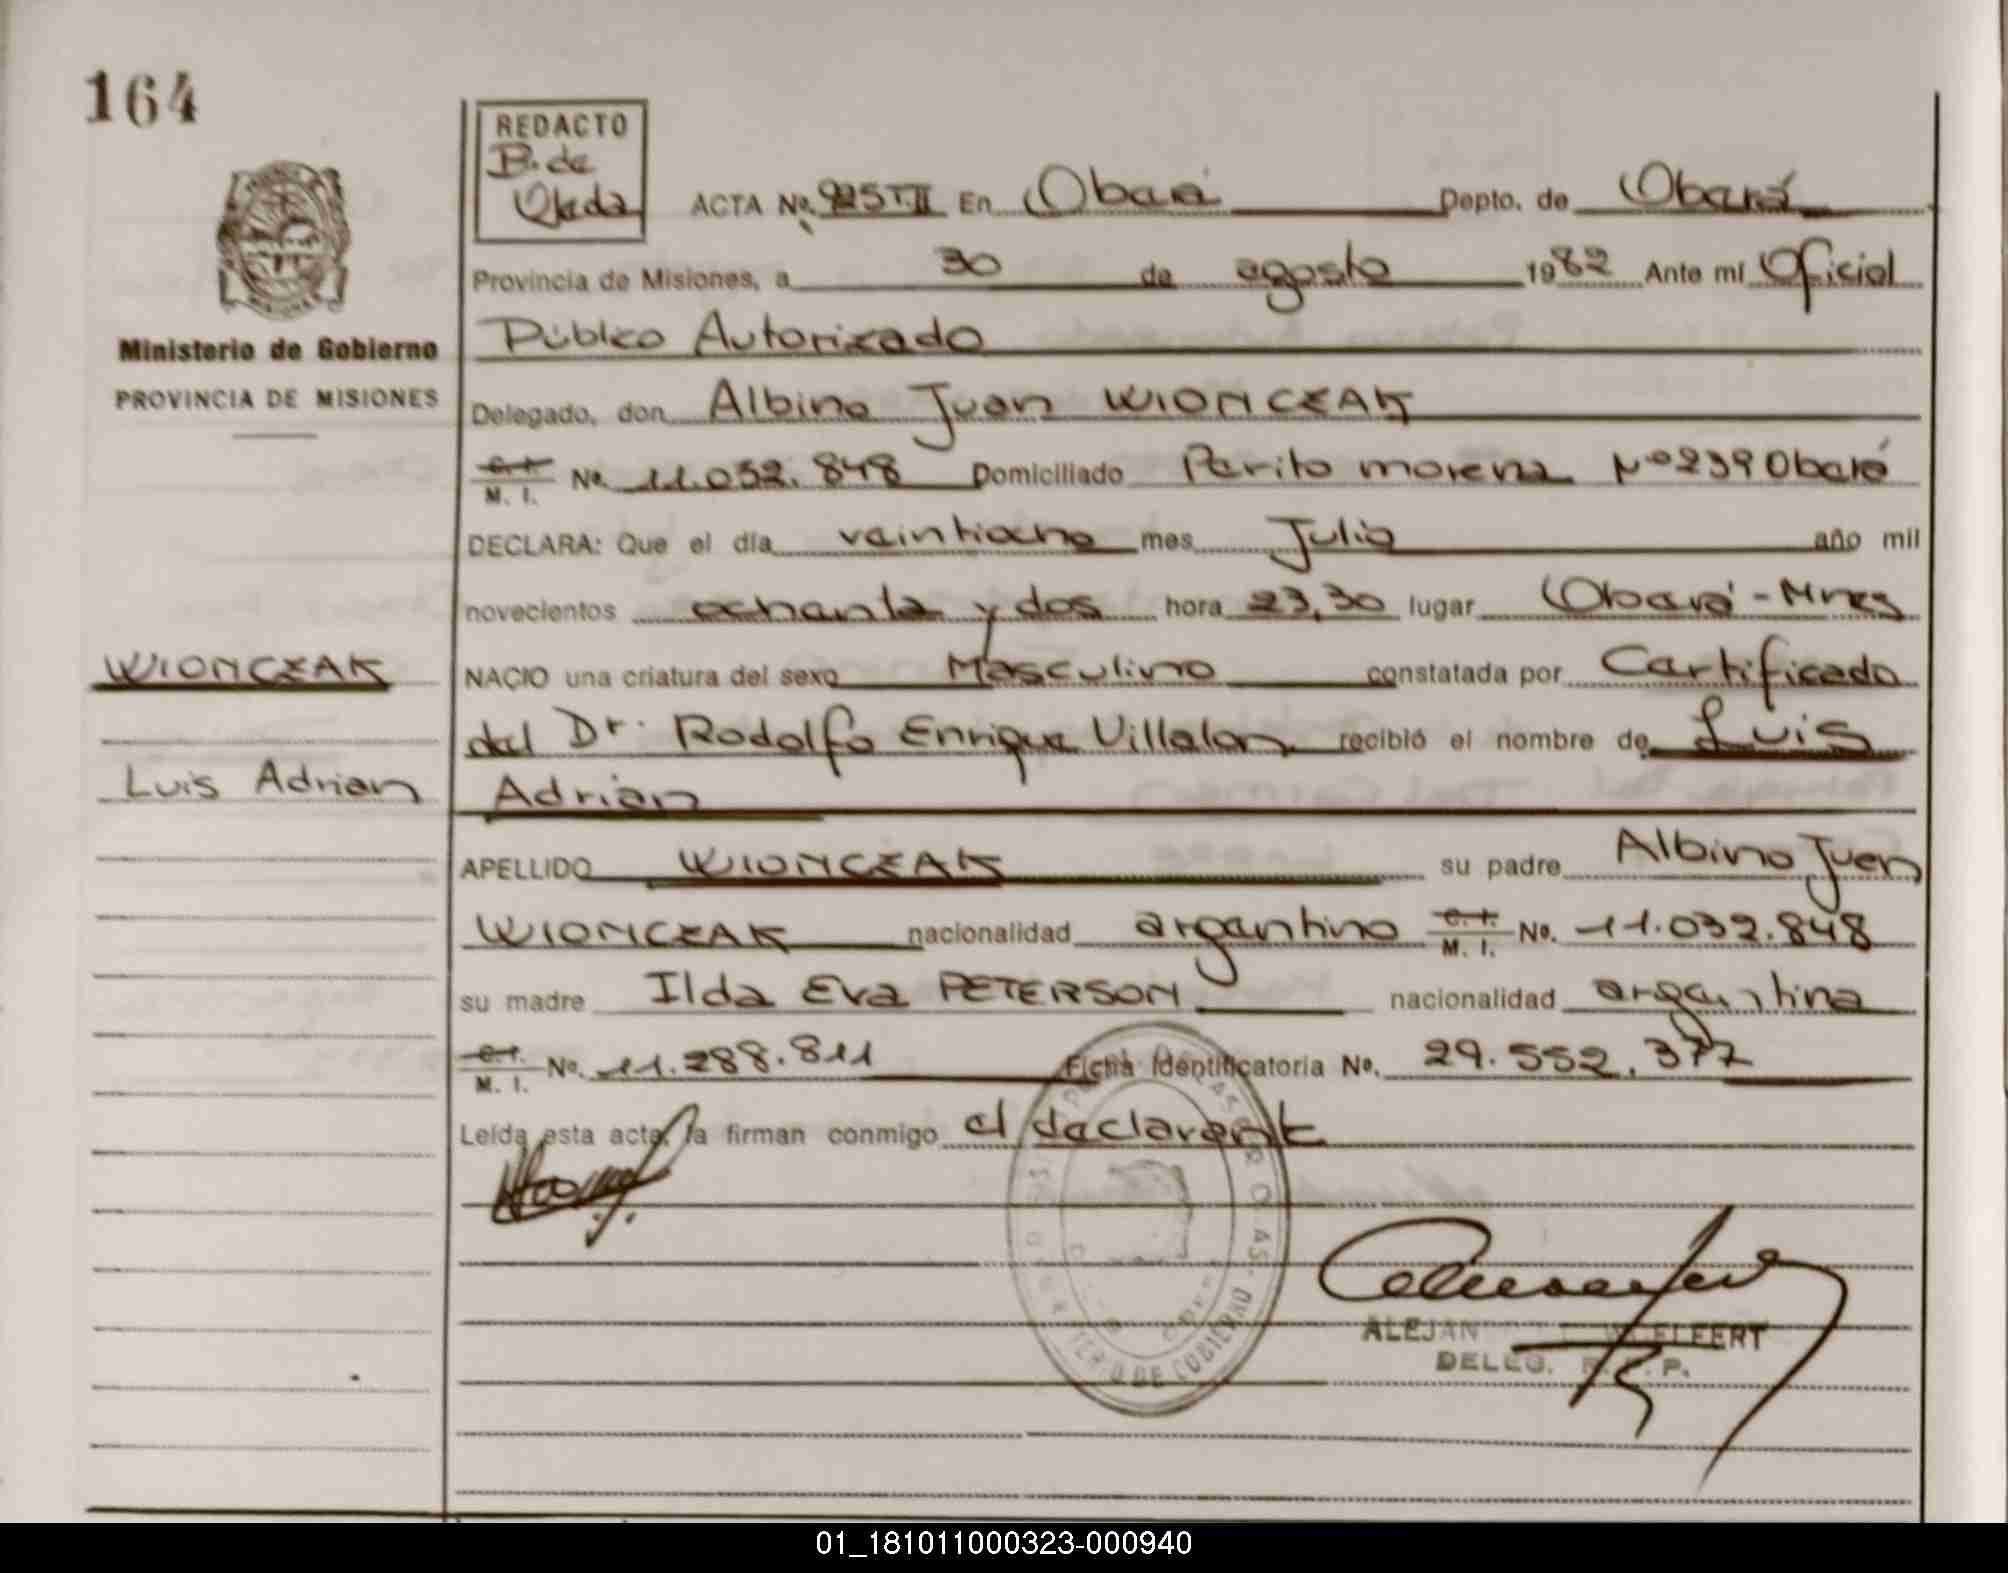 164
REDACTO
B. de
Ojeda
ACTA No. 925 T.II En Oberá Depto. de Oberá
Provincia de Misiones, a 30 de agosto 1982 Ante mí Oficial
Público Autorizado
Ministerio de Gobierno
PROVINCIA DE MISIONES
Delegado, don Albino Juan WIONCZAK
C. I. M. I. No. 11.032.848 Domiciliado Perito moreno Nº 239 Oberá
DECLARA: Que el día veintiocho mes Julio año mil
novecientos ochenta y dos hora 23,30 lugar Oberá - Mnes
WIONCZAK
NACIO una criatura del sexo Masculino constatada por Certificado
del Dr. Rodolfo Enrique Villalon recibió el nombre de Luis
Luis Adrian
Adrian
APELLIDO WIONCZAK su padre Albino Juan
WIONCZAK nacionalidad argentino C. I. M. I. No. 11.032.848
su madre Ilda Eva PETERSON nacionalidad argentina
C. I. M. I. No. 11.288.811 Ficha Identificatoria No. 29.552.377
Leída esta acta, la firman conmigo el declarante
TERIO DE GOBIERNO
ALEJAN WELFERT
DELEG. R. P.
01_181011000323-000940